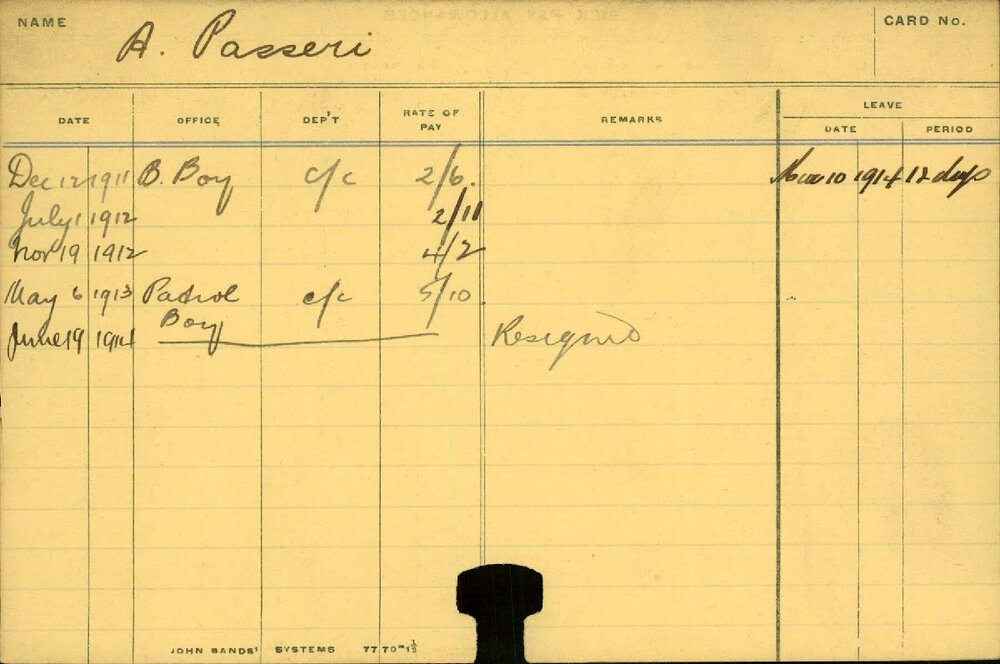 NAME
A. Passeri
CARD No.
DATE OFFICE DEP'T RATE OF PAY REMARKS LEAVE
DATE PERIOD
Dec 12 1911 B. Boy c/c 2/6. Mar 10 1914 12 days
July 1 1912 2/11
Nov 19 1912 4/2
May 6 1913 Patrol Boy c/c 5/10.
June 19 1914 Resigned
JOHN SANDS' SYSTEMS